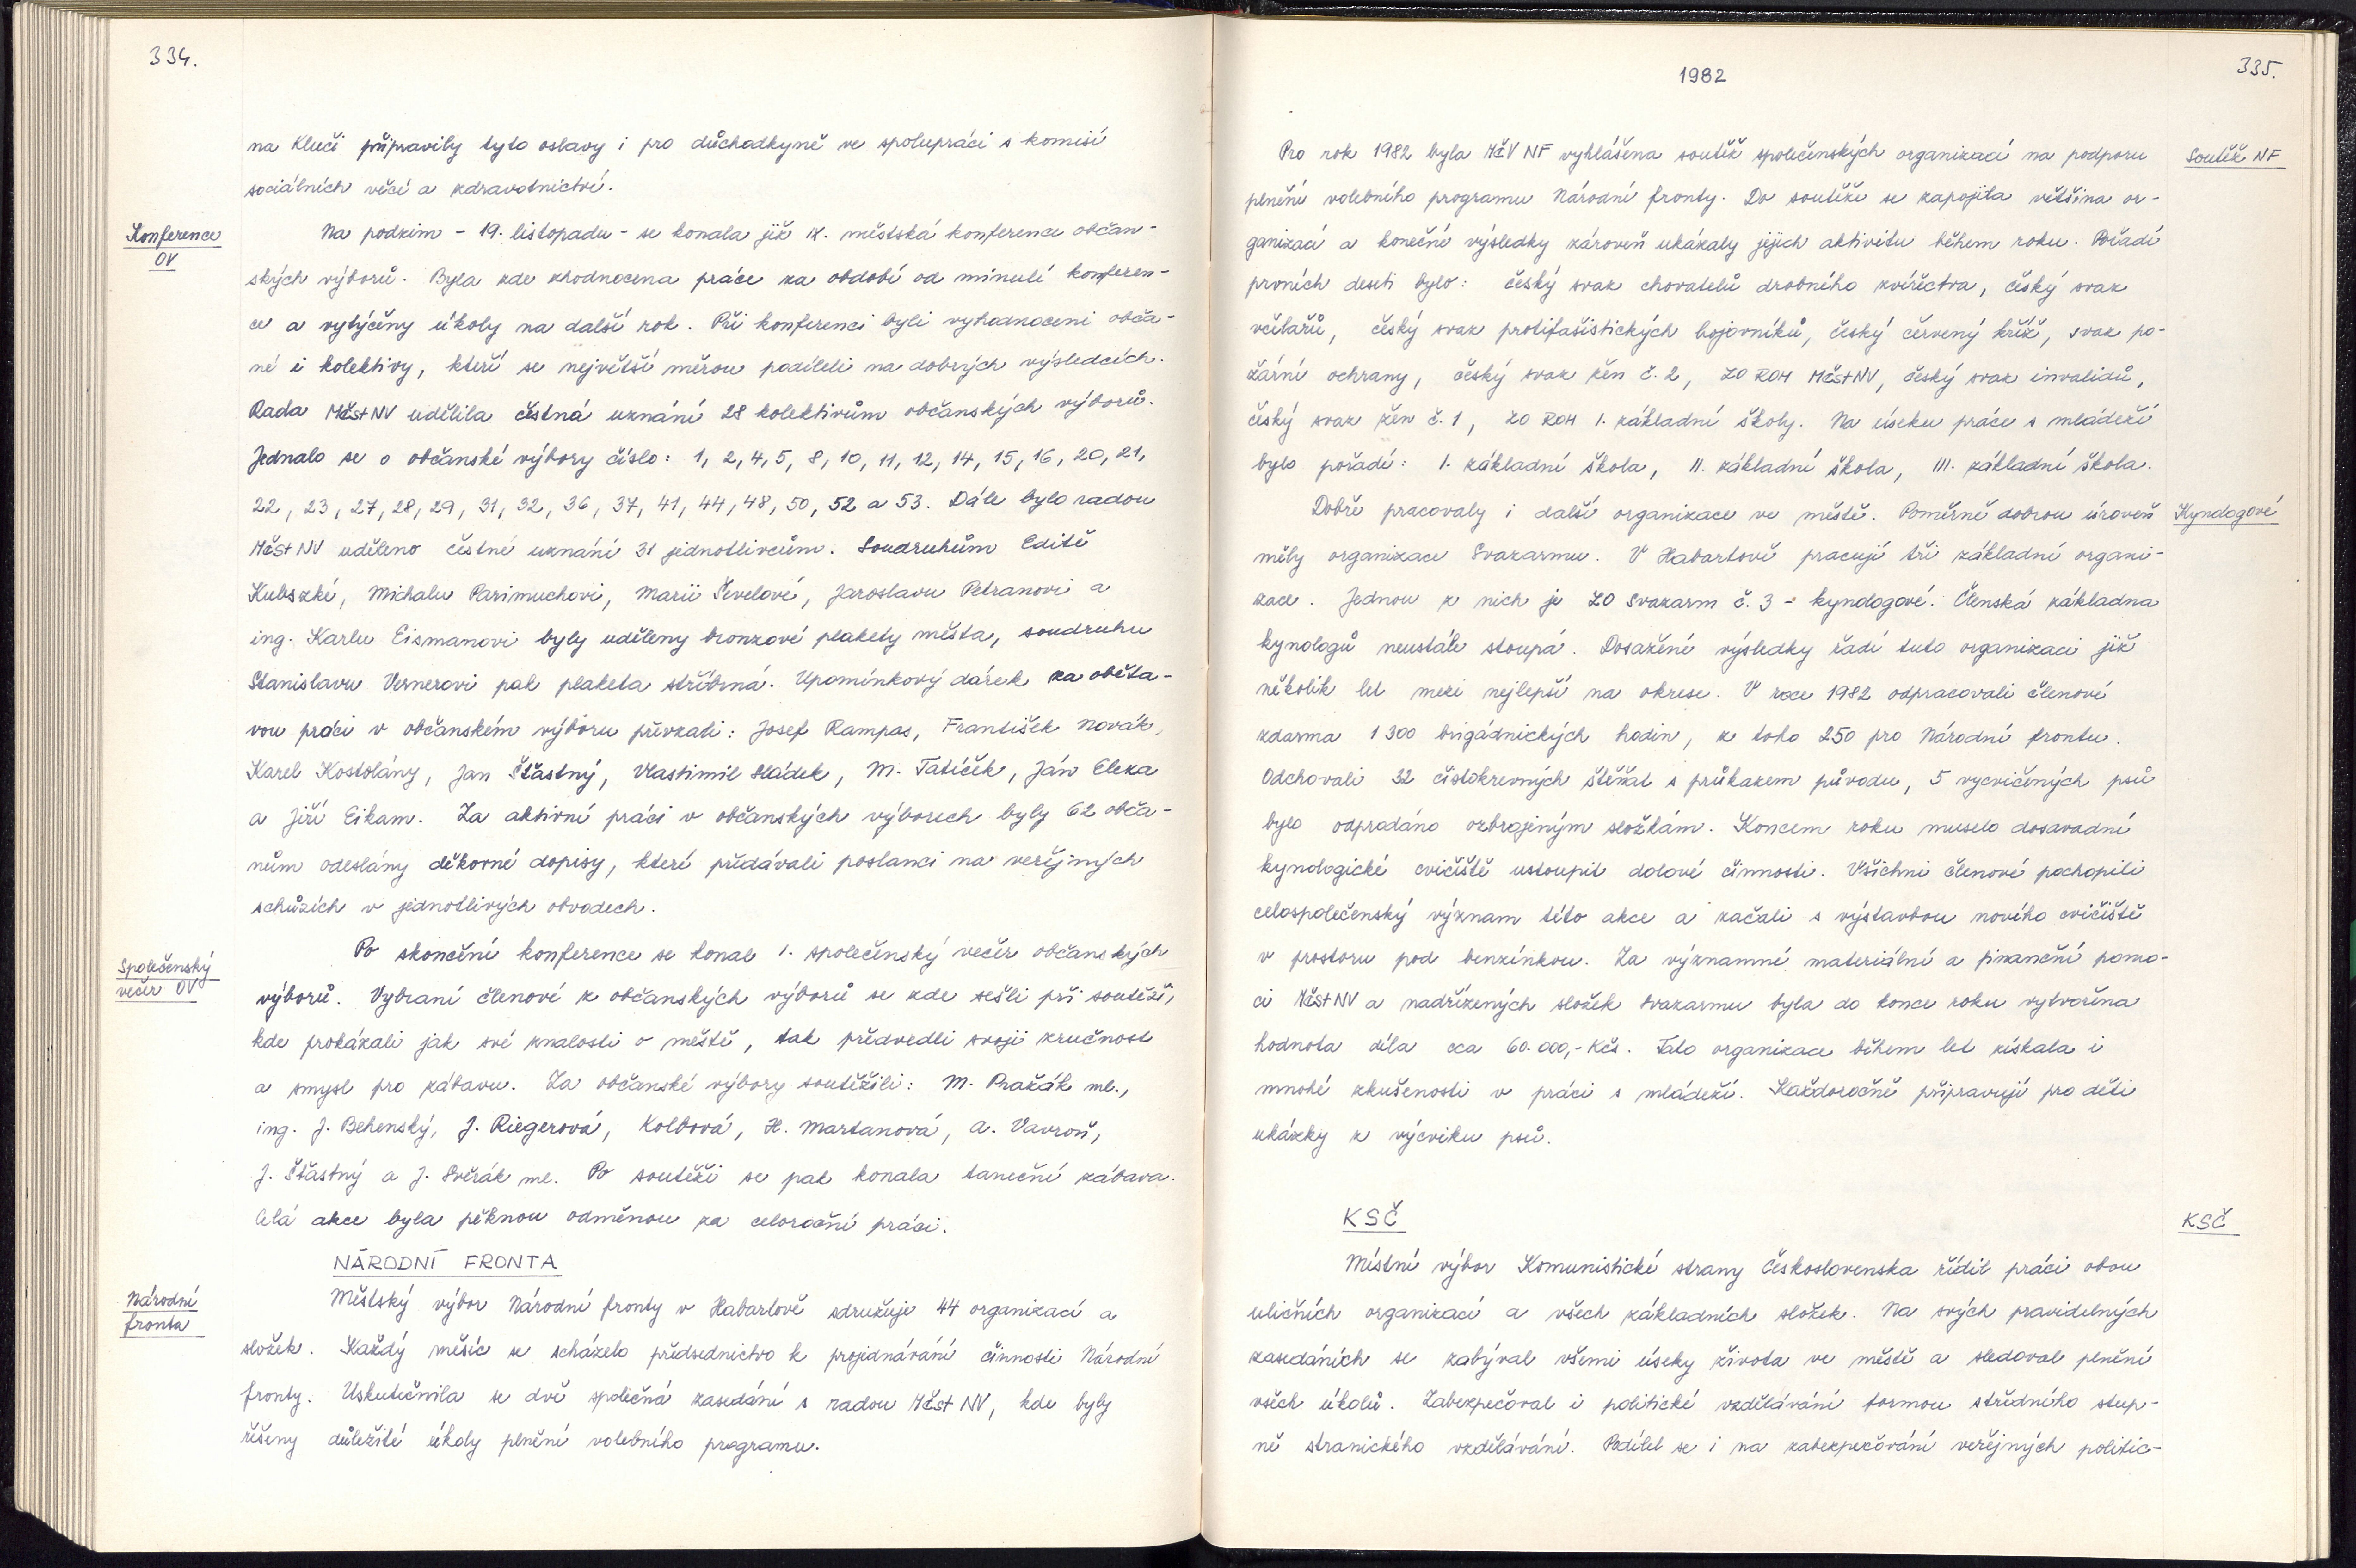 334.
na Kluči připravily tyto oslavy i pro důchodkyně ve spolupráci s komisí
sociálních věcí a zdravotnictví.
Konference
OV
Na podzim - 19. listopadu - se konala již IX. městská konference občan-
ských výborů. Byla zde zhodnocena práce za období od minulé konferen-
ce a vytýčeny úkoly na další rok. Při konferenci byli vyhodnoceni obča-
né i kolektivy, kteří se největší měrou podíleli na dobrých výsledcích.
Rada MěstNV udělila čestná uznání 28 kolektivům občanských výborů.
Jednalo se o občanské výbory číslo: 1, 2, 4, 5, 8, 10, 11, 12, 14, 15, 16, 20, 21,
22, 23, 27, 28, 29, 31, 32, 36, 37, 41, 44, 48, 50, 52 a 53. Dále bylo radou
MěstNV uděleno čestné uznání 31 jednotlivcům. Soudruhům Editě
Kubszké, Michalu Parimuchovi, Marii Ševelové, Jaroslavu Petranovi a
ing. Karlu Eismanovi byly uděleny bronzové plakety města, soudruhu
Stanislavu Vernerovi pak plaketa stříbrná. Upomínkový dárek za oběta-
vou práci v občanském výboru převzali: Josef Rampas, František Novák,
Karel Kostolány, Jan Šťastný, Vlastimil Sládek, M. Tatíček, Ján Eleza
a Jiří Eikam. Za aktivní práci v občanských výborech byly 62 obča-
nům odeslány děkovné dopisy, které předávali poslanci na veřejných
schůzích v jednotlivých obvodech.
Společenský
večer OV
Po skončení konference se konal 1. společenský večer občanských
výborů. Vybraní členové z občanských výborů se zde sešli při soutěži,
kde prokázali jak své znalosti o městě, tak předvedli svoji zručnost
a smysl pro zábavu. Za občanské výbory soutěžili: M. Pražák ml.,
ing. J. Behenský, J. Riegerová, Kolbová, H. Martanová, A. Vavroň,
J. Šťastný a J. Svěrák ml. Po soutěži se pak konala taneční zábava.
Celá akce byla pěknou odměnou za celoroční práci.
NÁRODNÍ FRONTA
Národní
fronta
Městský výbor Národní fronty v Habartově sdružuje 44 organizací a
složek. Každý měsíc se scházelo předsednictvo k projednávání činnosti Národní
fronty. Uskutečnila se dvě společná zasedání s radou Měst NV, kde byly
řešeny důležité úkoly plnění volebního programu.
1982
335.
Pro rok 1982 byla MěV NF vyhlášena soutěž společenských organizací na podporu
Soutěž NF
plnění volebního programu Národní fronty. Do soutěže se zapojila většina or-
ganizací a konečné výsledky zároveň ukázaly jejich aktivitu během roku. Pořadí
prvních deseti bylo: český svaz chovatelů drobného zvířectva, český svaz
včelařů, český svaz protifašistických bojovníků, český červený kříž, svaz po-
žární ochrany, český svaz žen č. 2, ZO ROH MěstNV, český svaz invalidů,
český svaz žen č. 1, ZO ROH I. základní školy. Na úseku práce s mládeží
bylo pořadí: I. základní škola, II. základní škola, III. základní škola.
Dobře pracovaly i další organizace ve městě. Poměrně dobrou úroveň
Kynologové
měly organizace Svazarmu. V Habartově pracují tři základní organi-
zace. Jednou z nich je ZO Svazarm č. 3 - kynologové. Členská základna
kynologů neustále stoupá. Dosažené výsledky řadí tuto organizaci již
několik let mezi nejlepší na okrese. V roce 1982 odpracovali členové
zdarma 1 300 brigádnických hodin, z toho 250 pro Národní frontu.
Odchovali 32 čistokrevných štěňat s průkazem původu, 5 vycvičených psů
bylo odprodáno ozbrojeným složkám. Koncem roku muselo dosavadní
kynologické cvičiště ustoupit dolové činnosti. Všichni členové pochopili
celospolečenský význam této akce a začali s výstavbou nového cvičiště
v prostoru pod benzínkou. Za významné materiální a finanční pomo-
ci MěstNV a nadřízených složek Svazarmu byla do konce roku vytvořena
hodnota díla cca 60.000,- Kčs. Tato organizace během let získala i
mnohé zkušenosti v práci s mládeží. Každoročně připravují pro děti
ukázky z výcviku psů.
KSČ
KSČ
Místní výbor Komunistické strany Československa řídil práci obou
uličních organizací a všech základních složek. Na svých pravidelných
zasedáních se zabýval všemi úseky života ve městě a sledoval plnění
všech úkolů. Zabezpečoval i politické vzdělávání formou středního stup-
ně stranického vzdělávání. Podílel se i na zabezpečování veřejných politic-